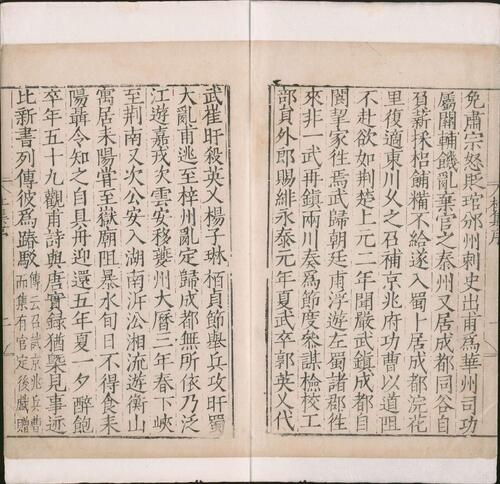 免肅宗怒貶琯邠州刺史出甫爲華州司功
屬關輔饑亂棄官之秦州又居成都同谷自
負薪採梠餔糒不給遂入蜀卜居成都浣花
里復適東川久之召補京兆府功曹以道阻
不赴欲如荊楚上元二年聞嚴武鎮成都自
閬挈家往焉武歸朝廷甫浮遊左蜀諸郡往
來非一武再鎮兩川奏爲節度參謀檢校工
部員外郎賜緋永泰元年夏武卒郭英乂代
武崔旰殺英乂楊子琳栢貞節舉兵攻旰蜀
大亂甫逃至梓州亂定歸成都無所依乃泛
江遊嘉戎次雲安移夔州大曆三年春下峽
至荊南又次公安入湖南泝沿湘流遊衡山
寓居耒陽嘗至嶽廟阻暴水旬日不得食耒
陽聶令知之自具舟迎還五年夏一夕醉飽
卒年五十九觀甫詩與唐實錄猶槩見事迹
比新書列傳彼爲踳駁傳云召試京兆兵曹
而集有官定後戲贈